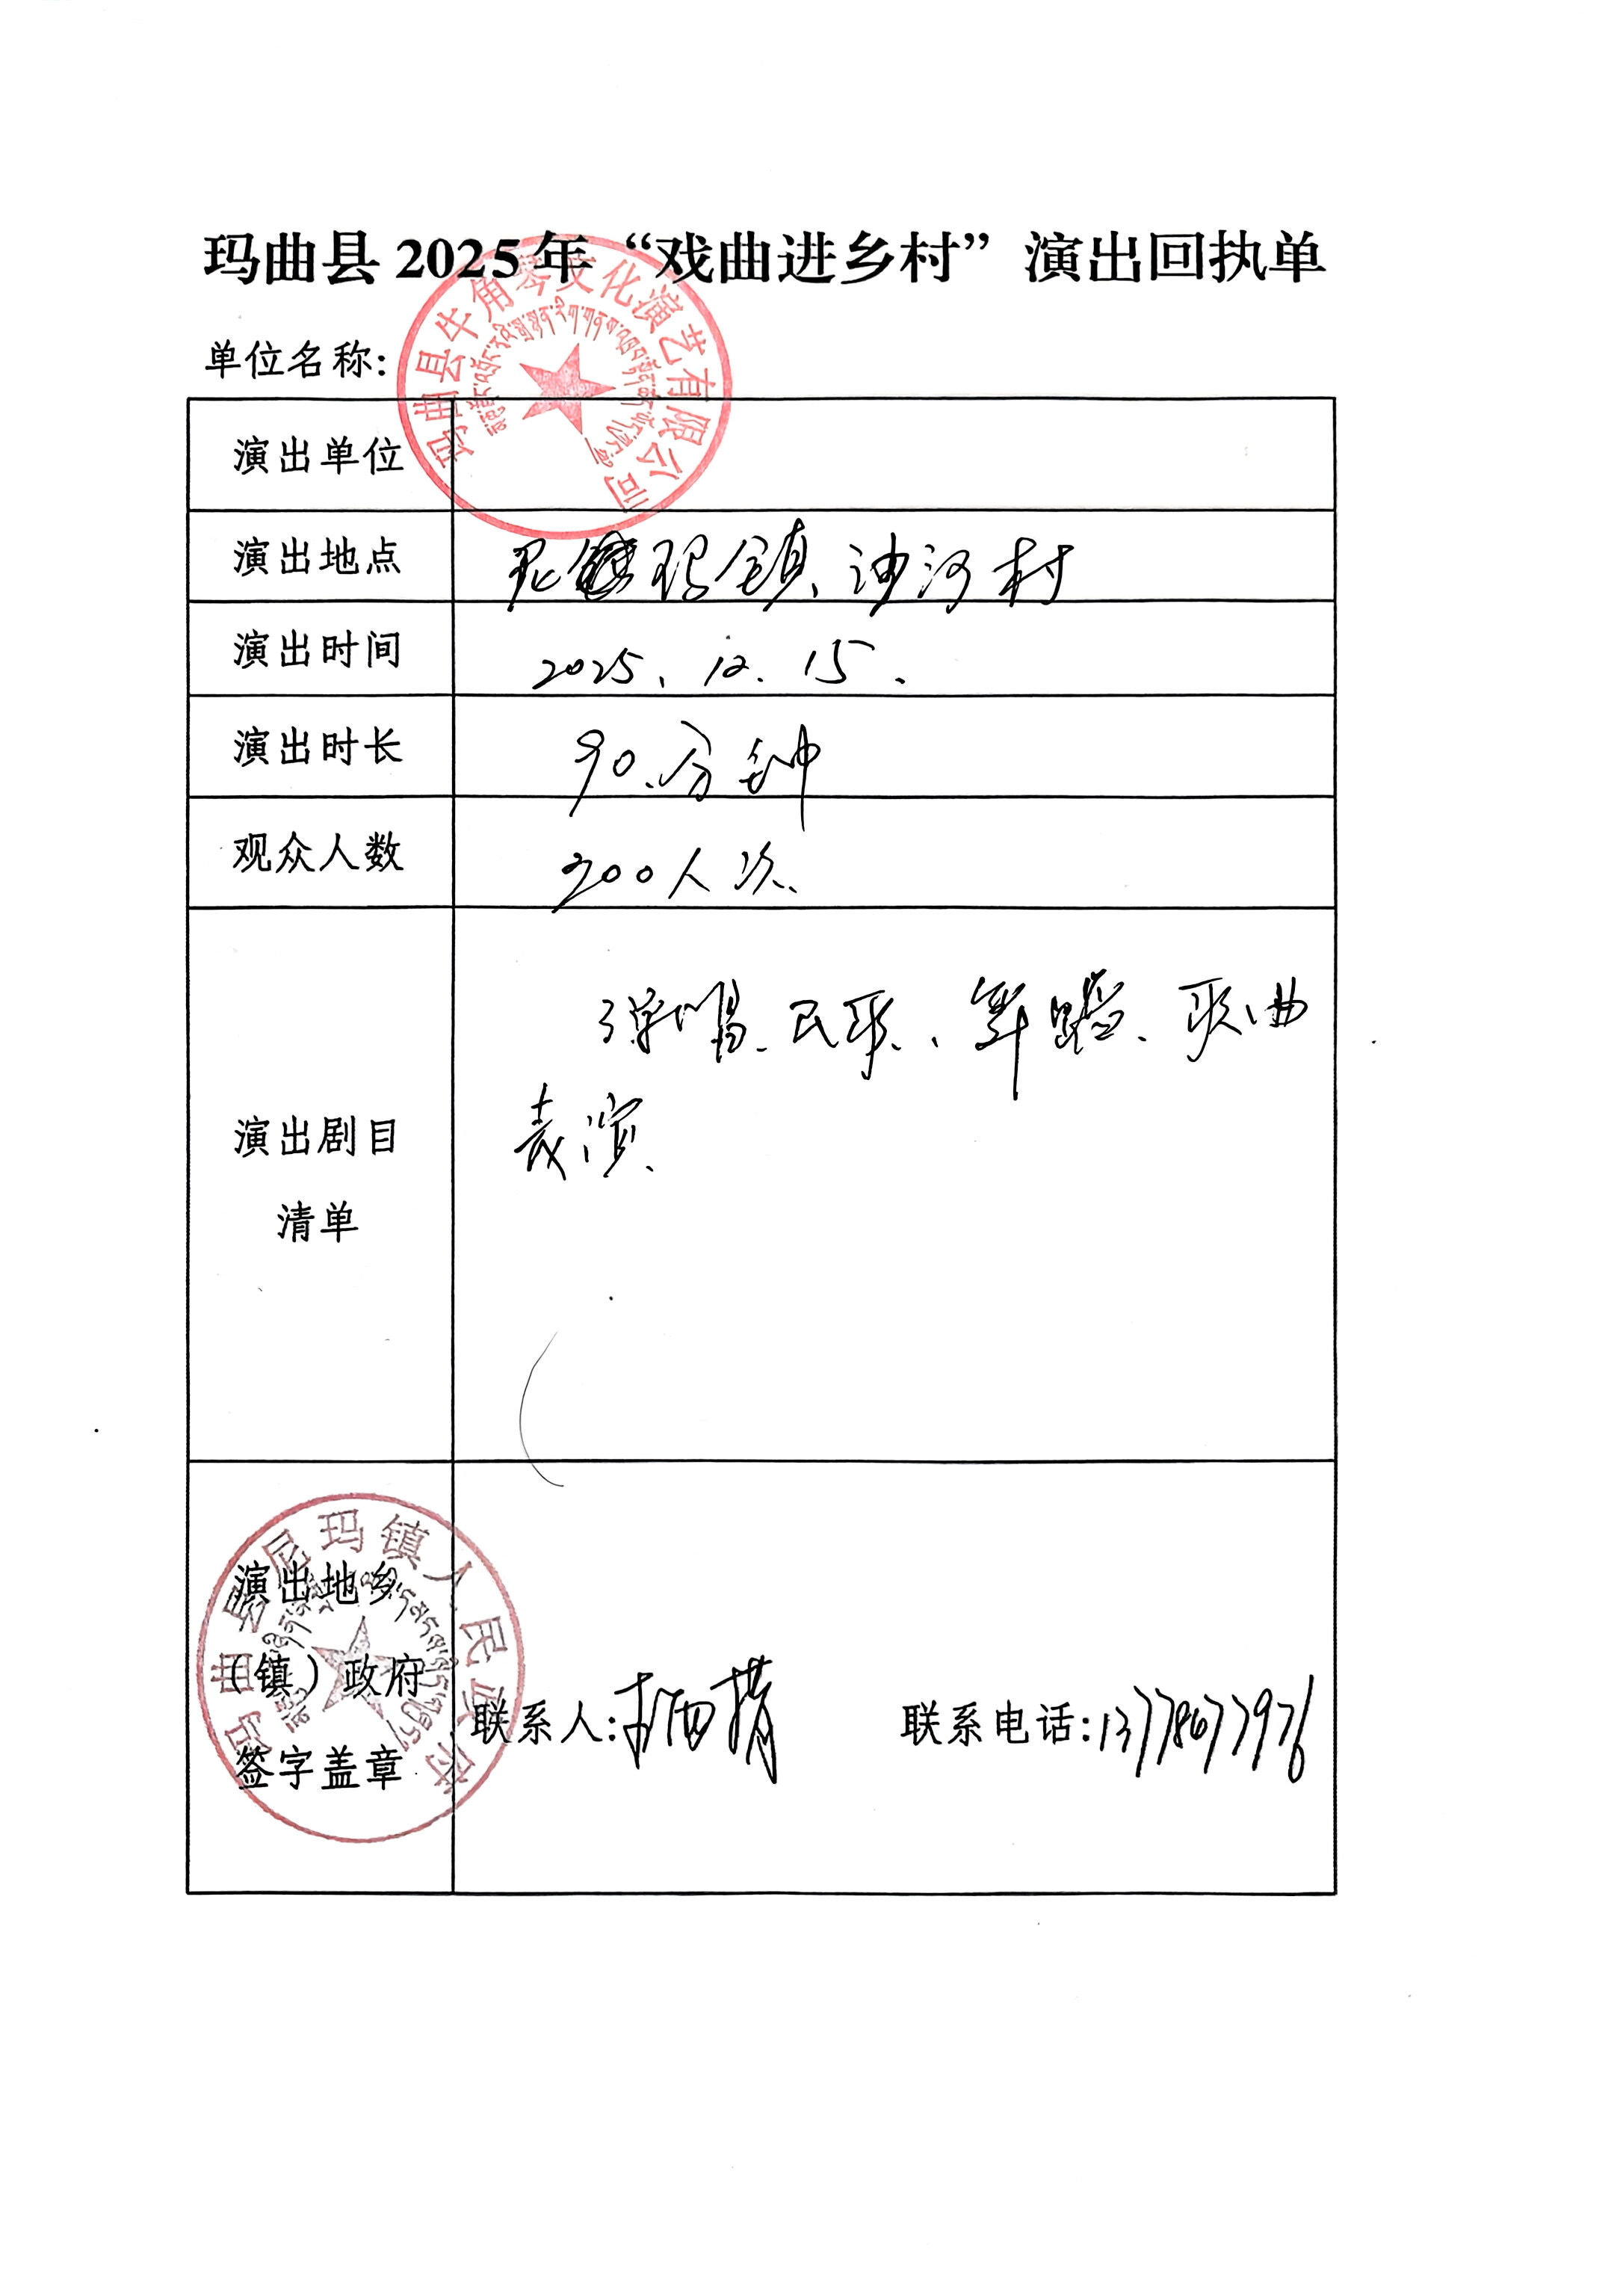 玛曲县2025年“戏曲进乡村”演出回执单
单位名称:
玛曲县牛角琴文化演艺有限公司
演出单位
演出地点 尼玛镇、沙河村
演出时间 2025、12、15、
演出时长 90、分钟
观众人数 200人次、
弹唱、民歌、舞蹈、歌曲
表演、
演出剧目
清单
玛曲县尼玛镇人民政府
演出地乡
（镇）政府
签字盖章
联系人: 联系电话:13778677976